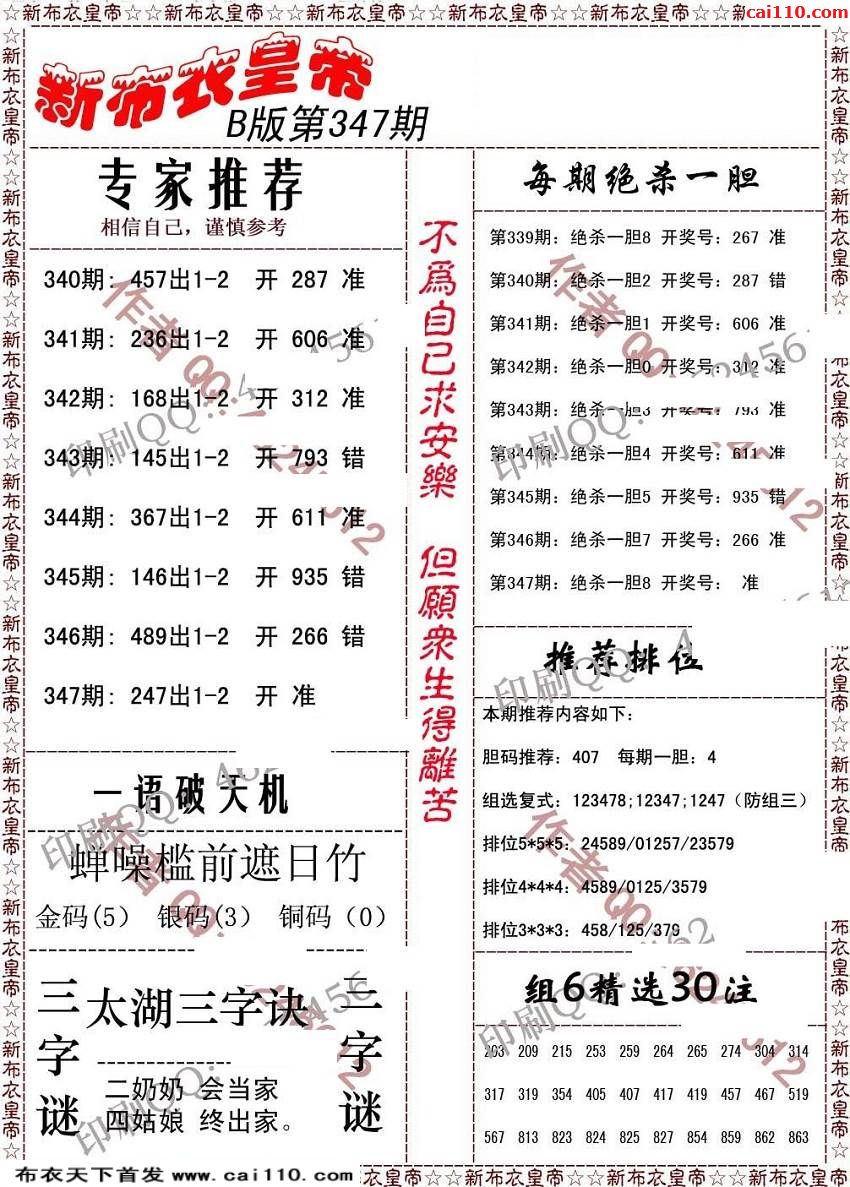 ☆☆新布衣皇帝☆☆新布衣皇帝☆☆新布衣皇帝☆☆新布衣皇帝☆☆新布衣皇帝☆☆新
cai110.com
新布衣皇帝
B版第347期
专家推荐
相信自己，谨慎参考
340期: 457出1-2 开 287 准
341期: 236出1-2 开 606 准
342期: 168出1-2 开 312 准
343期: 145出1-2 开 793 错
344期: 367出1-2 开 611 准
345期: 146出1-2 开 935 错
346期: 489出1-2 开 266 错
347期: 247出1-2 开 准
一语破天机
蝉噪槛前遮日竹
金码(5) 银码(3) 铜码（0）
三字谜
太湖三字诀
二奶奶 会当家
四姑娘 终出家。
三字谜
不爲自己求安樂 但願衆生得離苦
每期绝杀一胆
第339期: 绝杀一胆8 开奖号: 267 准
第340期: 绝杀一胆2 开奖号: 287 错
第341期: 绝杀一胆1 开奖号: 606 准
第342期: 绝杀一胆0 开奖号: 312 准
第343期: 绝杀一胆3 开奖号: 793 准
第344期: 绝杀一胆4 开奖号: 611 准
第345期: 绝杀一胆5 开奖号: 935 错
第346期: 绝杀一胆7 开奖号: 266 准
第347期: 绝杀一胆8 开奖号: 准
推荐排位
本期推荐内容如下:
胆码推荐: 407 每期一胆: 4
组选复式: 123478;12347;1247（防组三）
排位5*5*5: 24589/01257/23579
排位4*4*4: 4589/0125/3579
排位3*3*3: 458/125/379
组6精选30注
203 209 215 253 259 264 265 274 304 314
317 319 354 405 407 417 419 457 467 519
567 813 823 824 825 827 854 859 862 863
布衣天下首发 www.cai110.com
☆新布衣皇帝☆☆新布衣皇帝☆☆新布衣皇帝☆☆新布衣皇帝☆